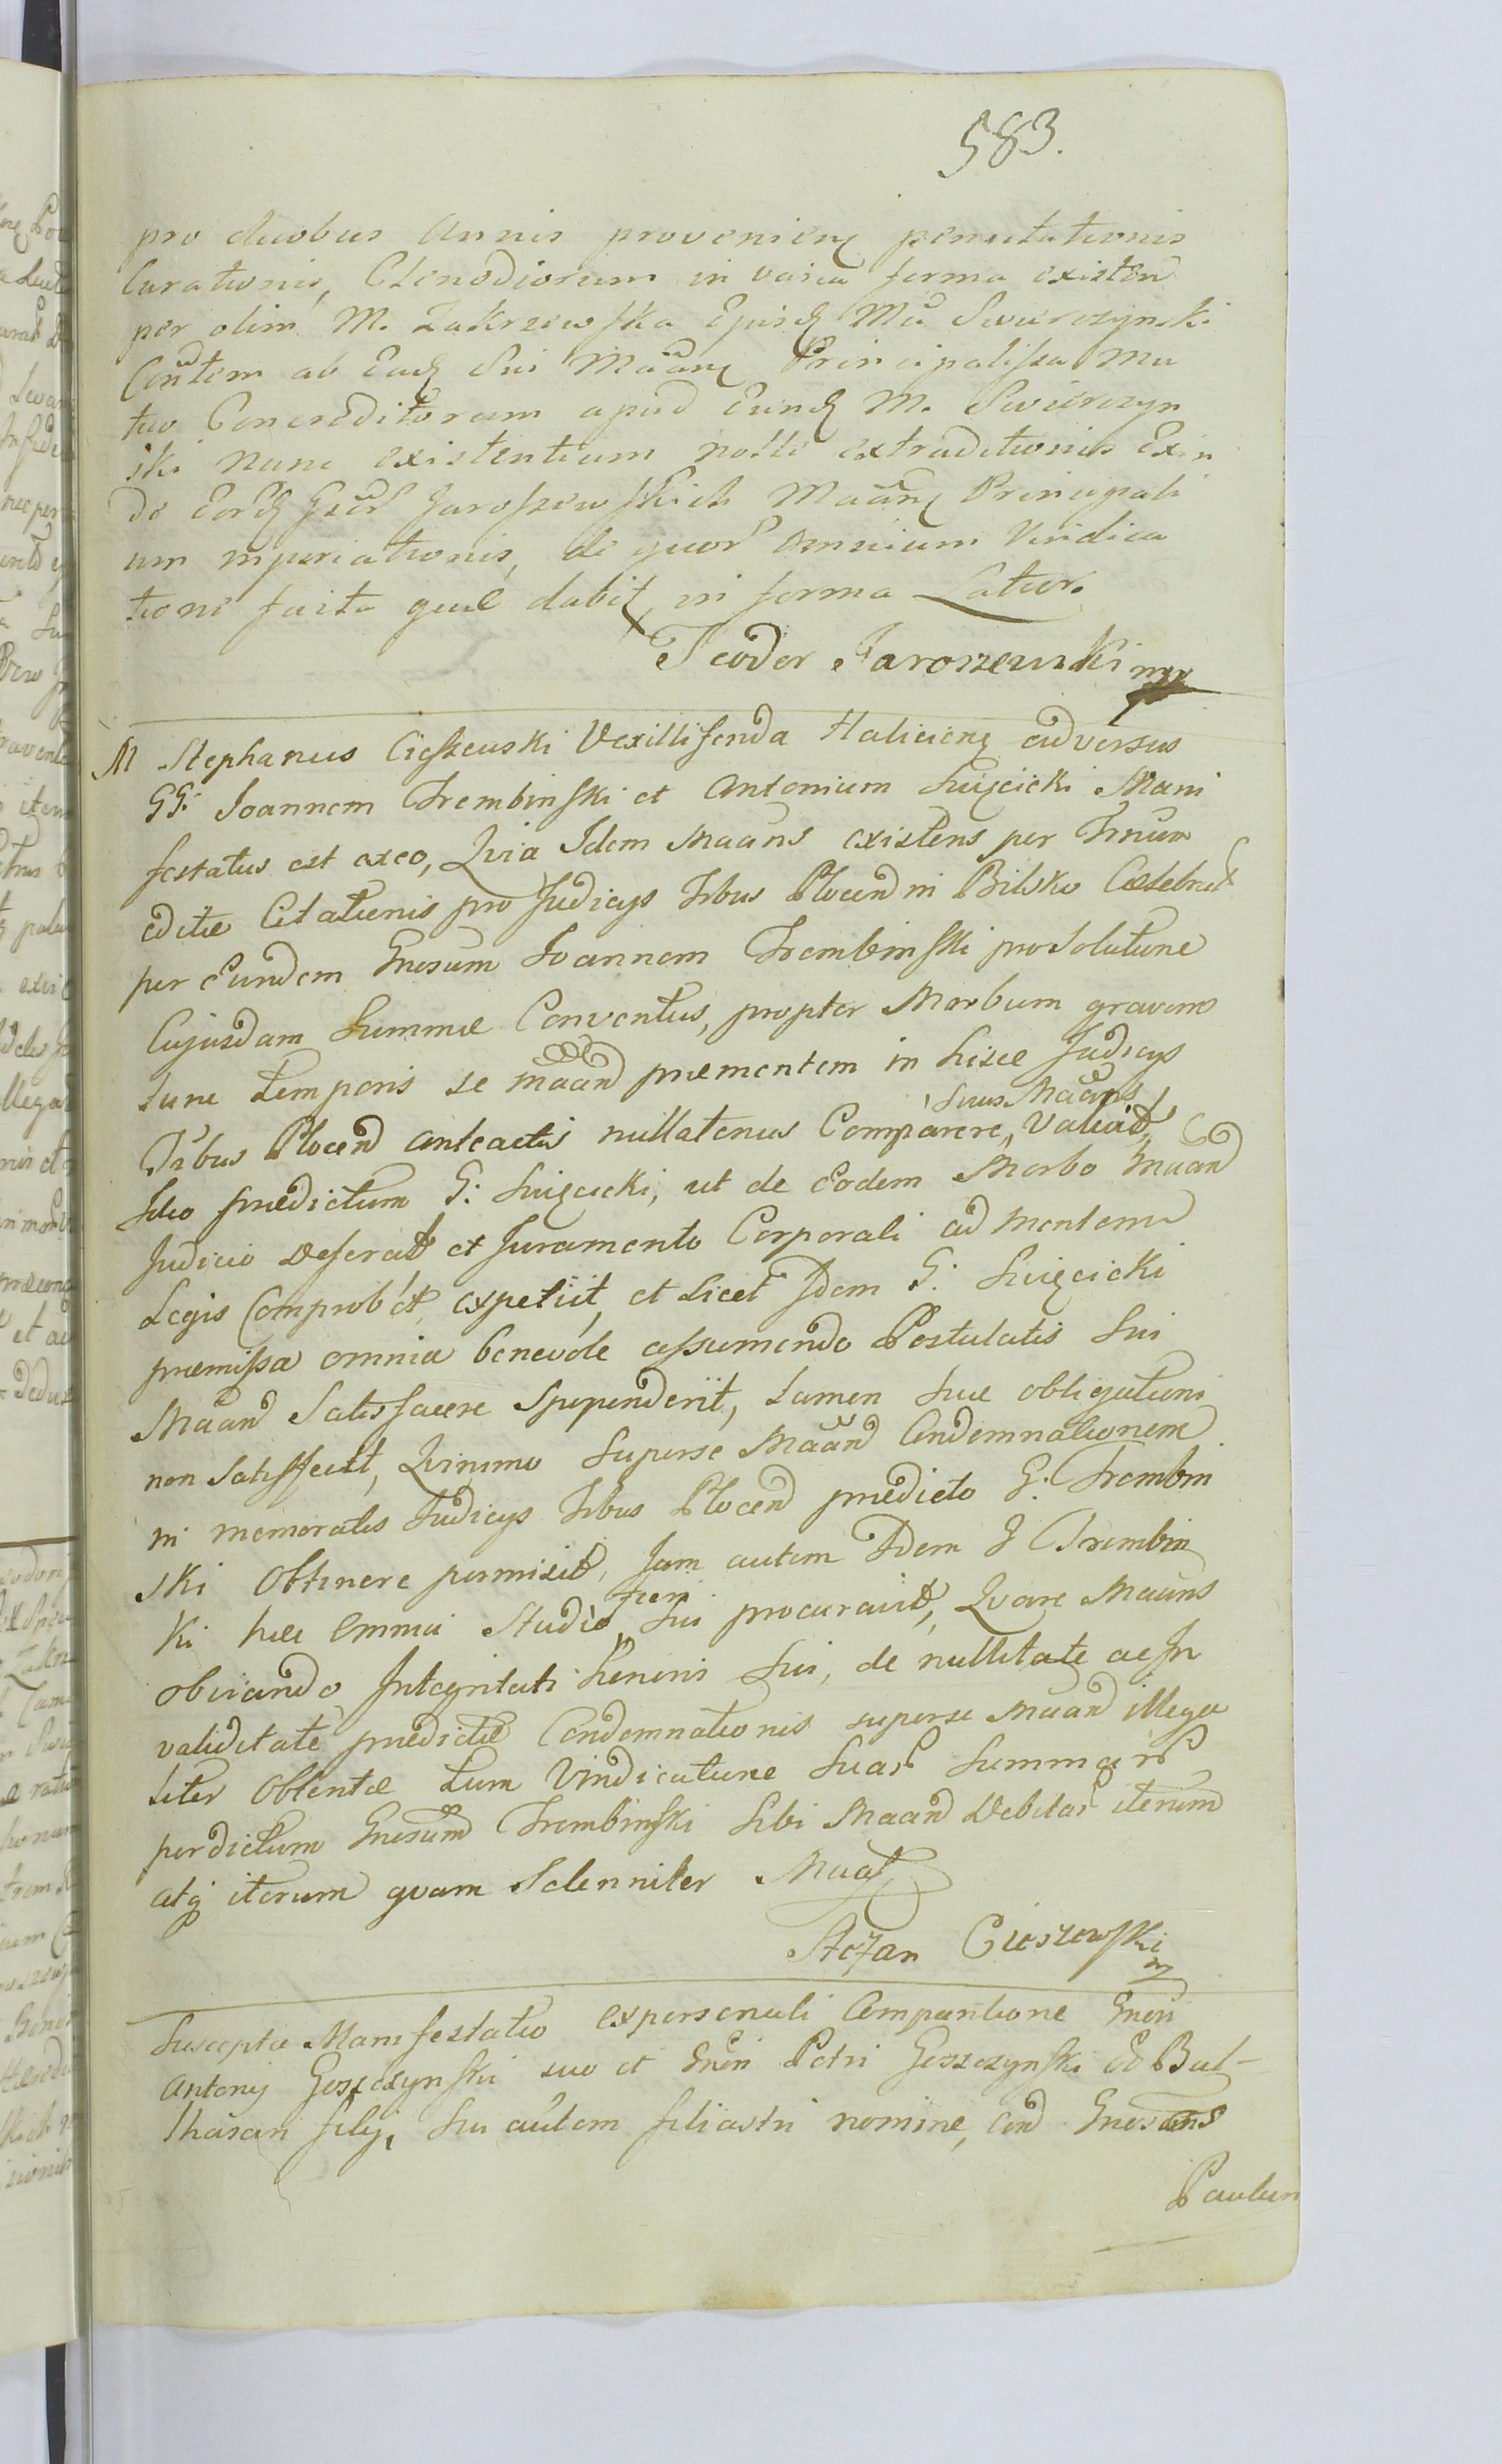 583.
pro duobus Annis provenien permutationis
Curationis, Clenodiorum in varia forma existen
per olim M. Zakrzewska Ejusd Mu Swierczynski
Contem ab Ead Sui Maan Principalissa Mu
tuo Concreditorum apud Eund M. Swierczyn
ski nunc existentium nolle extraditionis Exin
de Eord Gner Jaroszewskich Maan Principali
um injuriationis, de quor omnium Vindica
tione facta quae dabit in forma Latior.
Teodor Jaroszewski mp
M Stephanus Cieszewski Vexillifenda Haliciens adversus
GG: Joannem Trembinski et Antonium Swięcicki Mani
festatus est ex eo, Qvia Idem Maans existens per Trnum
editae Citationis pro Judicys Trbus Plocen in Bilsko Celebrat
per Eundem Gnosum Joannem Trembinski pro Solutione
Cujusdam Summae Conventus, propter Morbum gravem
tunc temporis se Maan prementem in hisce Judicys
Trbus Plocen anteactis nullatenus Comparere, Valuit,
Suus Maans
Ideo praedictum G: Swięcicki, ut de Eodem Morbo Maan
Judicio Deferat et Juramento Corporali ad mentem
Legis Comprobet expetiit, et Licet Idem G: Swięcicki
praemissa omnia benevole assumendo Postulatis Sui
Maan Satisfacere Spopenderit, tamen Suae obligationi
non Satisfecit, Qvinimo Superse Maan Condemnationem
in memoratis Judicys Trbus Plocen praedicto G: Trembin
ski Obtinere permisit, Jam autem Idem G Trembin
ki haec Omnia Studio Sui procuravit, Qvare Maans
fieri
obviando Integritati Honoris Sui, de nullitate ac In
validitate praedictae Condemnationis superse Maan illega
liter Obtentae tum Vindicatione Suar Summar
per dictum Gnosum Trembinski Sibi Maan Debitar iterum
atq iterum qvam Solenniter Maat
Stefan Cieszewski
mp
Suscepta Manifestatio ex personali Comparitione Gnen
Antonij Goszczynski suo et Gnen Petri Goszczynski et Bal-
thasari filij, Sui autem filiastri nomine, con Gnosans
Paulum